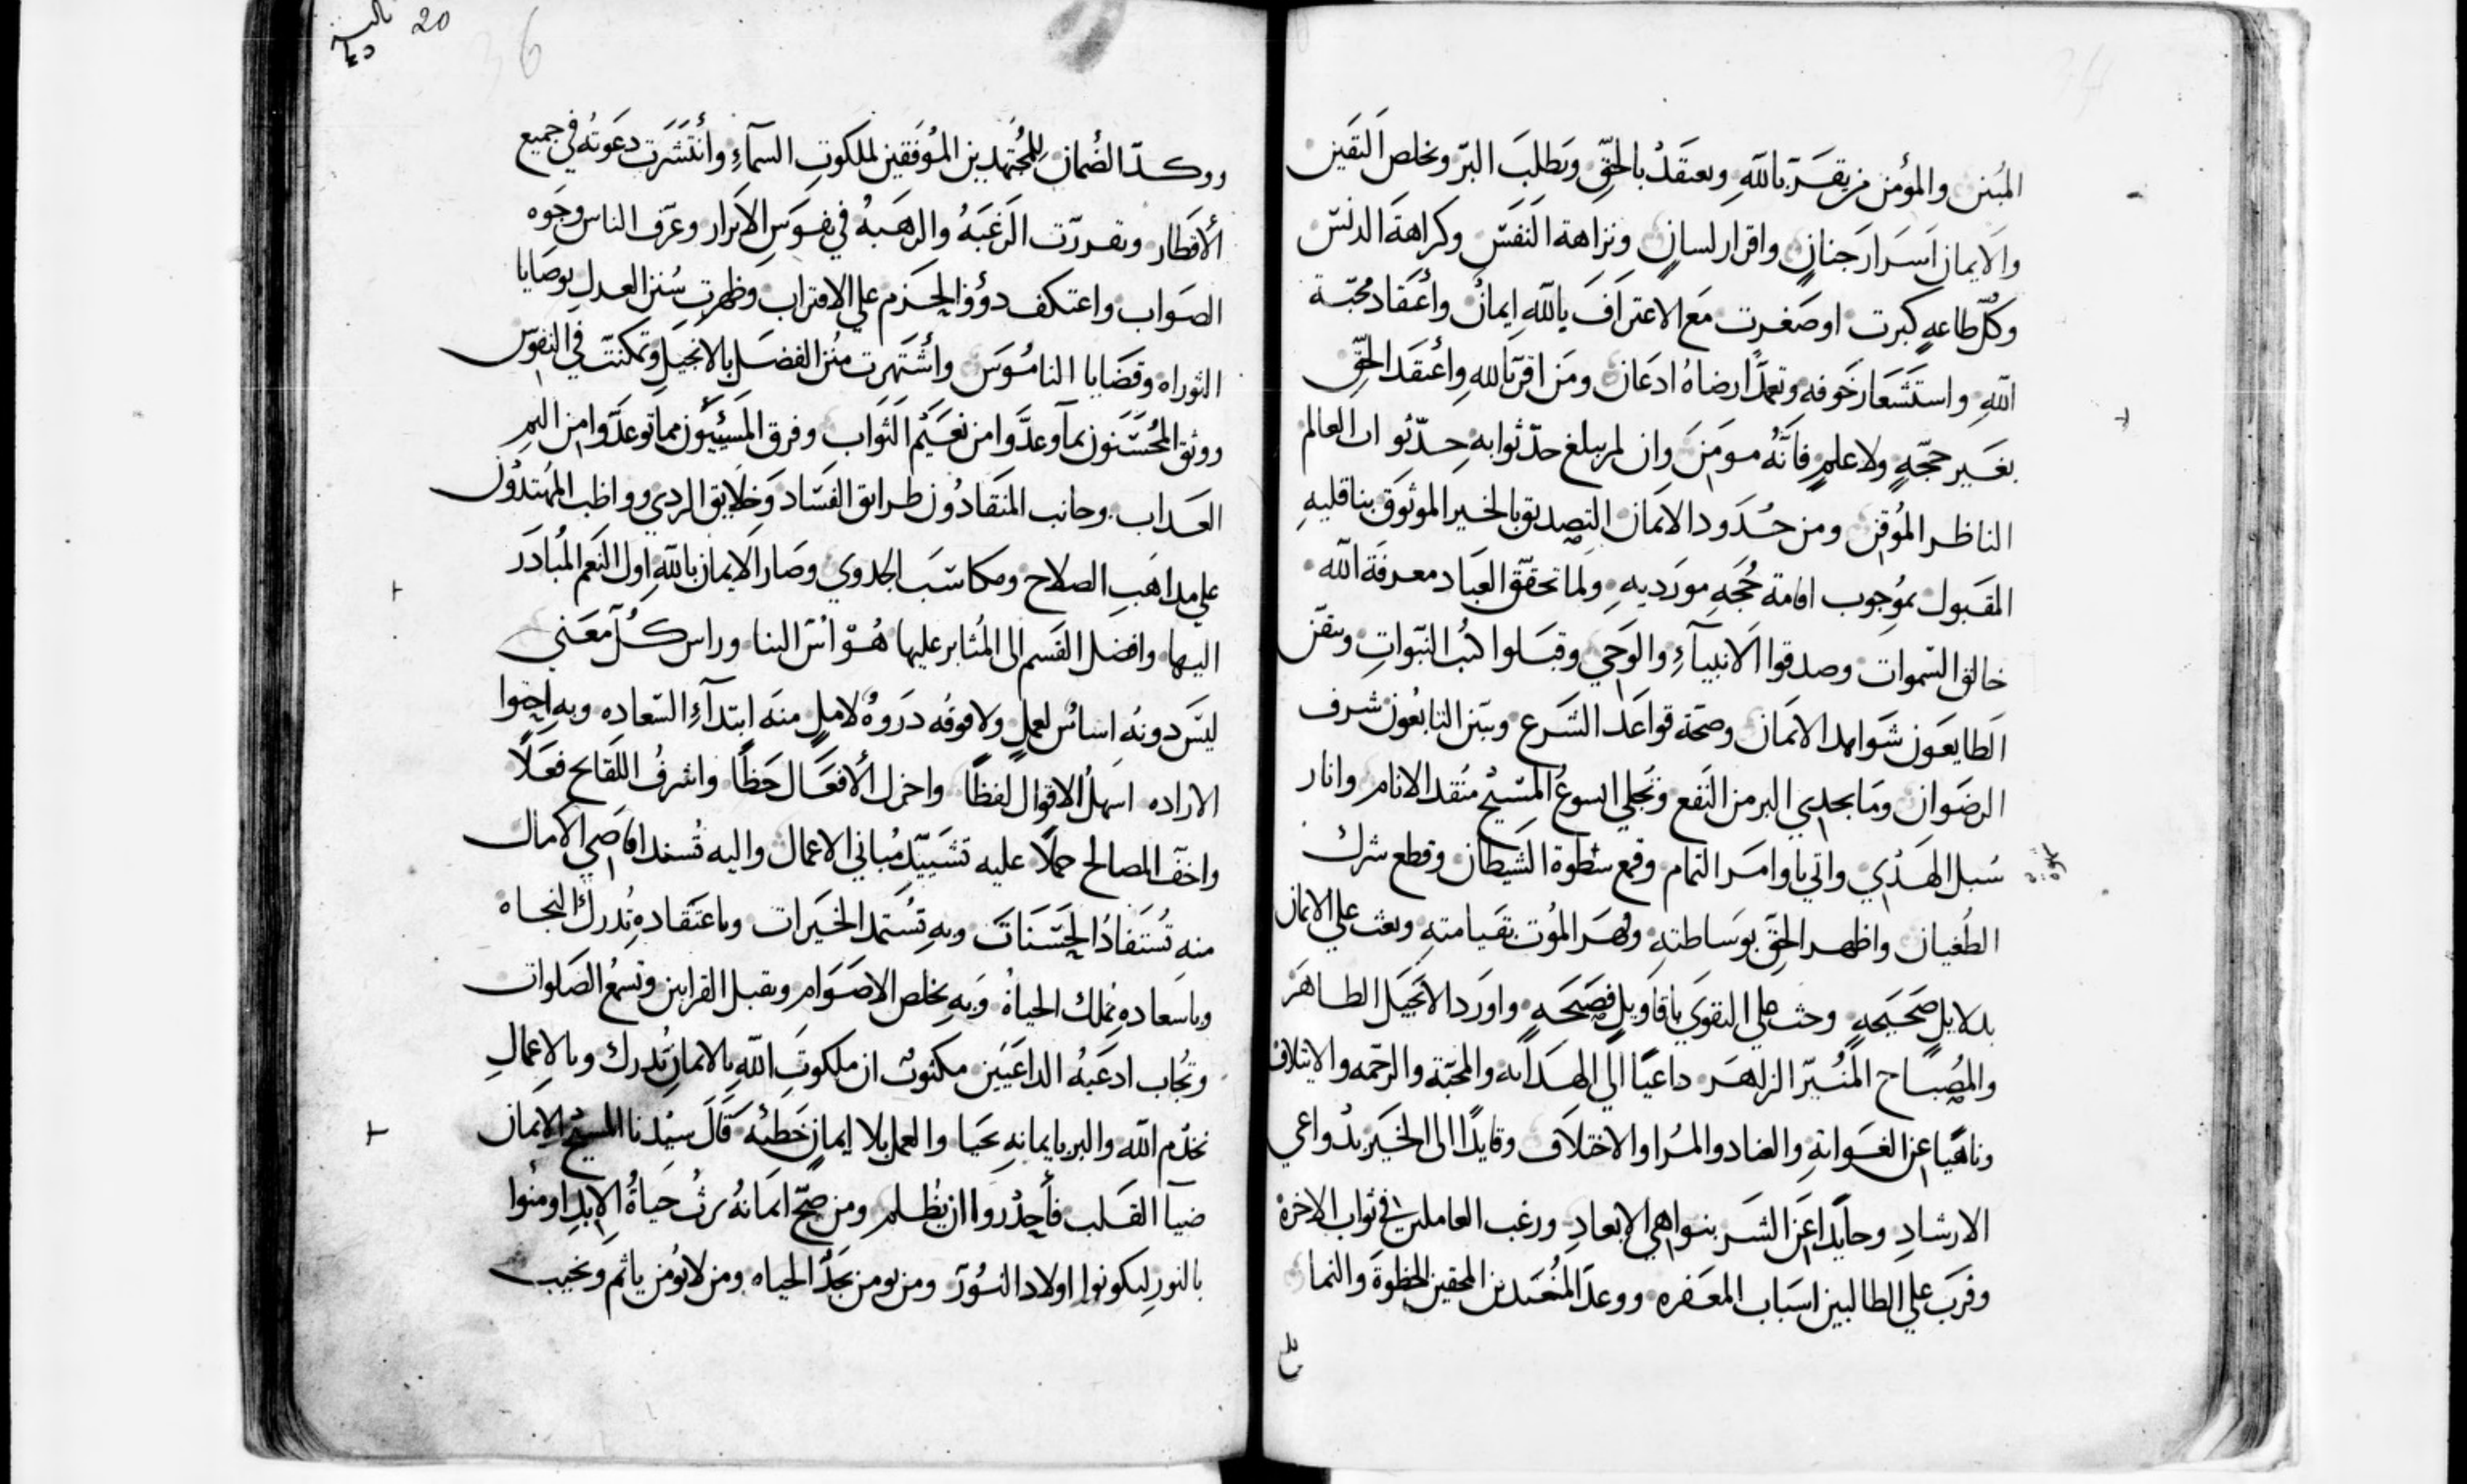 المبين والمؤمن من يقر بالله ويعتقد بالحق ويطلب البر ويخلص اليقين
والايمان اسرار جنان واقرار لسان ونزاهة النفس وكراهة الدنس
وكل طاعه كبرت او صغرت مع الاعتراف بالله ايمان وأعتقاد محبة
الله واستشعار خوفه وتعمد ارضاه ادعان ومن اقر بالله وأعتقد الحق
بغير حجّةٍ ولا علمٍ فانّه مومن وان لم يبلغ حدّ ثوابه حدّ ثواب العالم
الناظر الموقن ومن حدود الايمان التصديق بالخبر الموثوق بناقليه
المقبول بموجوب اقامة حجة مورديه ولما تحقق العباد معرفة الله
خالق السموات وصدقوا الانبيآء والوحي وقبلوا كتب النبوات وتيقن
الطايعون شواهد الايمان وصحة قواعد الشرع وتبين التابعون شرف
الرضوان وما يجدي البر من النفع وتجلي ايسوع المسيح منقد الانام وانار
سبل الهدي واتي باوامر التمام وقمع سطوة الشيطان وقطع شرك
الطغيان واظهر الحق بوساطته وقهر الموت بقيامته وبعث علي الايمان
بدلايل صحيحةٍ وحث علي التقوي باقاويل فصيحه واورد الانجيل الطاهر
والمصباح المنير الزاهر داعيًا الي الهدايه والمحبّة والرحمه والايتلاف
وناهيًا عن الغوايةِ والعناد والمرا والاختلاف وقايدًا الى الخير بدواعي
الارشاد وحايدا عن الشر بنواهي الابعاد ورغب العاملين في ثواب الاخرة
وقرب علي الطالبين اسباب المغفره ووعد المجتهدين المحقين الحظوة والنما
20
ووكدّ الضمان للمجتهدين الموفقين لملكوت السمآءِ وأنتشرت دعوته في جميع
الأقطار وتقررت الرغبة والرهبة في نفوس الابرار وعرّف الناس وجوه
الصواب واعتكف دوو الحزم علي الاقتراب وظهرت سنن العدل بوصايا
التوراه وقضايا الناموس وأشتهرت منن الفضل بالانجيل وتمكنت في النفوس
ووثق المحسنون بما وعدّوا من نعيم الثواب وفرق المسيئون مما توعدّوا من اليم
العداب وجانب المنقادون طرايق الفساد وخلايق الردي وواظب المهتدون
علي مداهب الصلاح ومكاسب الجدوي وصار الايمان بالله اول النعم المبادر
اليها وافضل القسم الى المثابر عليها هو اس البنا وراس كل معني
ليس دونه اساس لعمل ولا فوقه دروةٌ لامل منه ابتدآء السعاده وبه
الاراده اسهل الاقوال لفظًا واجزل الأفعال حظًا واشرف اللقايح فعلًا
واخف المصالح حملًا عليه تشييد مباني الاعمال واليه تسند اقاصي الآمال
منه تستفاد الحسنات وبه تستمد الخيرات وباعتقاده تدرك النجاه
وباسعاده تملك الحياة وبه يخلص الاصوام وتقبل القرابين وتسمع الصلوات
وتجاب ادعيه الداعيين مكتوب ان ملكوت الله بالايمان تدرك وبالاعمال
نخدم الله والبر بايمانه يحيا والعمل بلا ايمان خطيه قال سيدنا المسيح الايمان
ضيآ القلب فأحدروا ان يظلم ومن صحّ ايمانه يرث حياة الابد اومنوا
بالنور لتكونوا اولاد النور ومن يومن يجد الحياه ومن لا يؤمن ياثم ويخيب